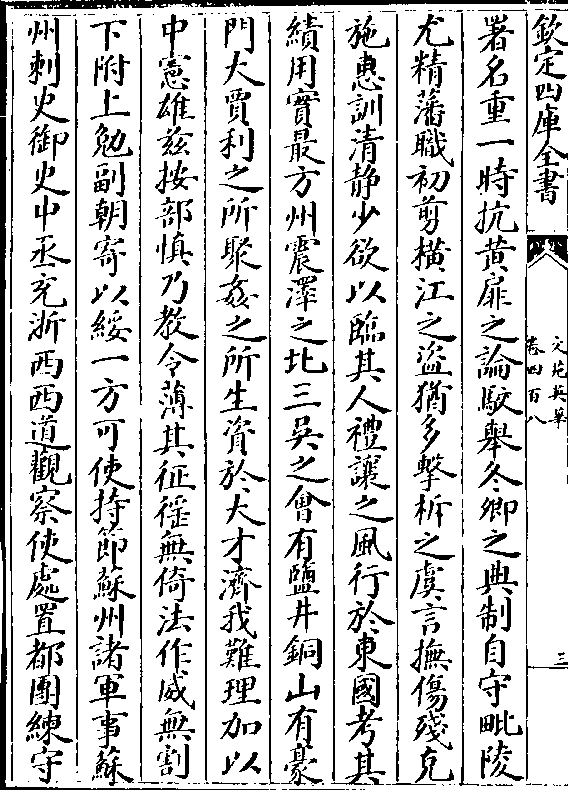 欽定四庫全書
文苑英華
卷四百八
三
署名重一時抗黄扉之論駮舉冬卿之典制自守毗陵
尤精藩職初剪横江之盜猶多擊柝之虞言撫傷殘克
施惠訓清静少欲以臨其人禮讓之風行於東國考其
績用實最方州震澤之北三吳之會有鹽井銅山有豪
門大賈利之所聚姦之所生資於大才濟我難理加以
中憲雄兹按部慎乃教令薄其征徭無倚法作威無割
下附上勉副朝寄以綏一方可使持節蘇州諸軍事蘇
州刺史御史中丞充浙西西道觀察使處置都團練守